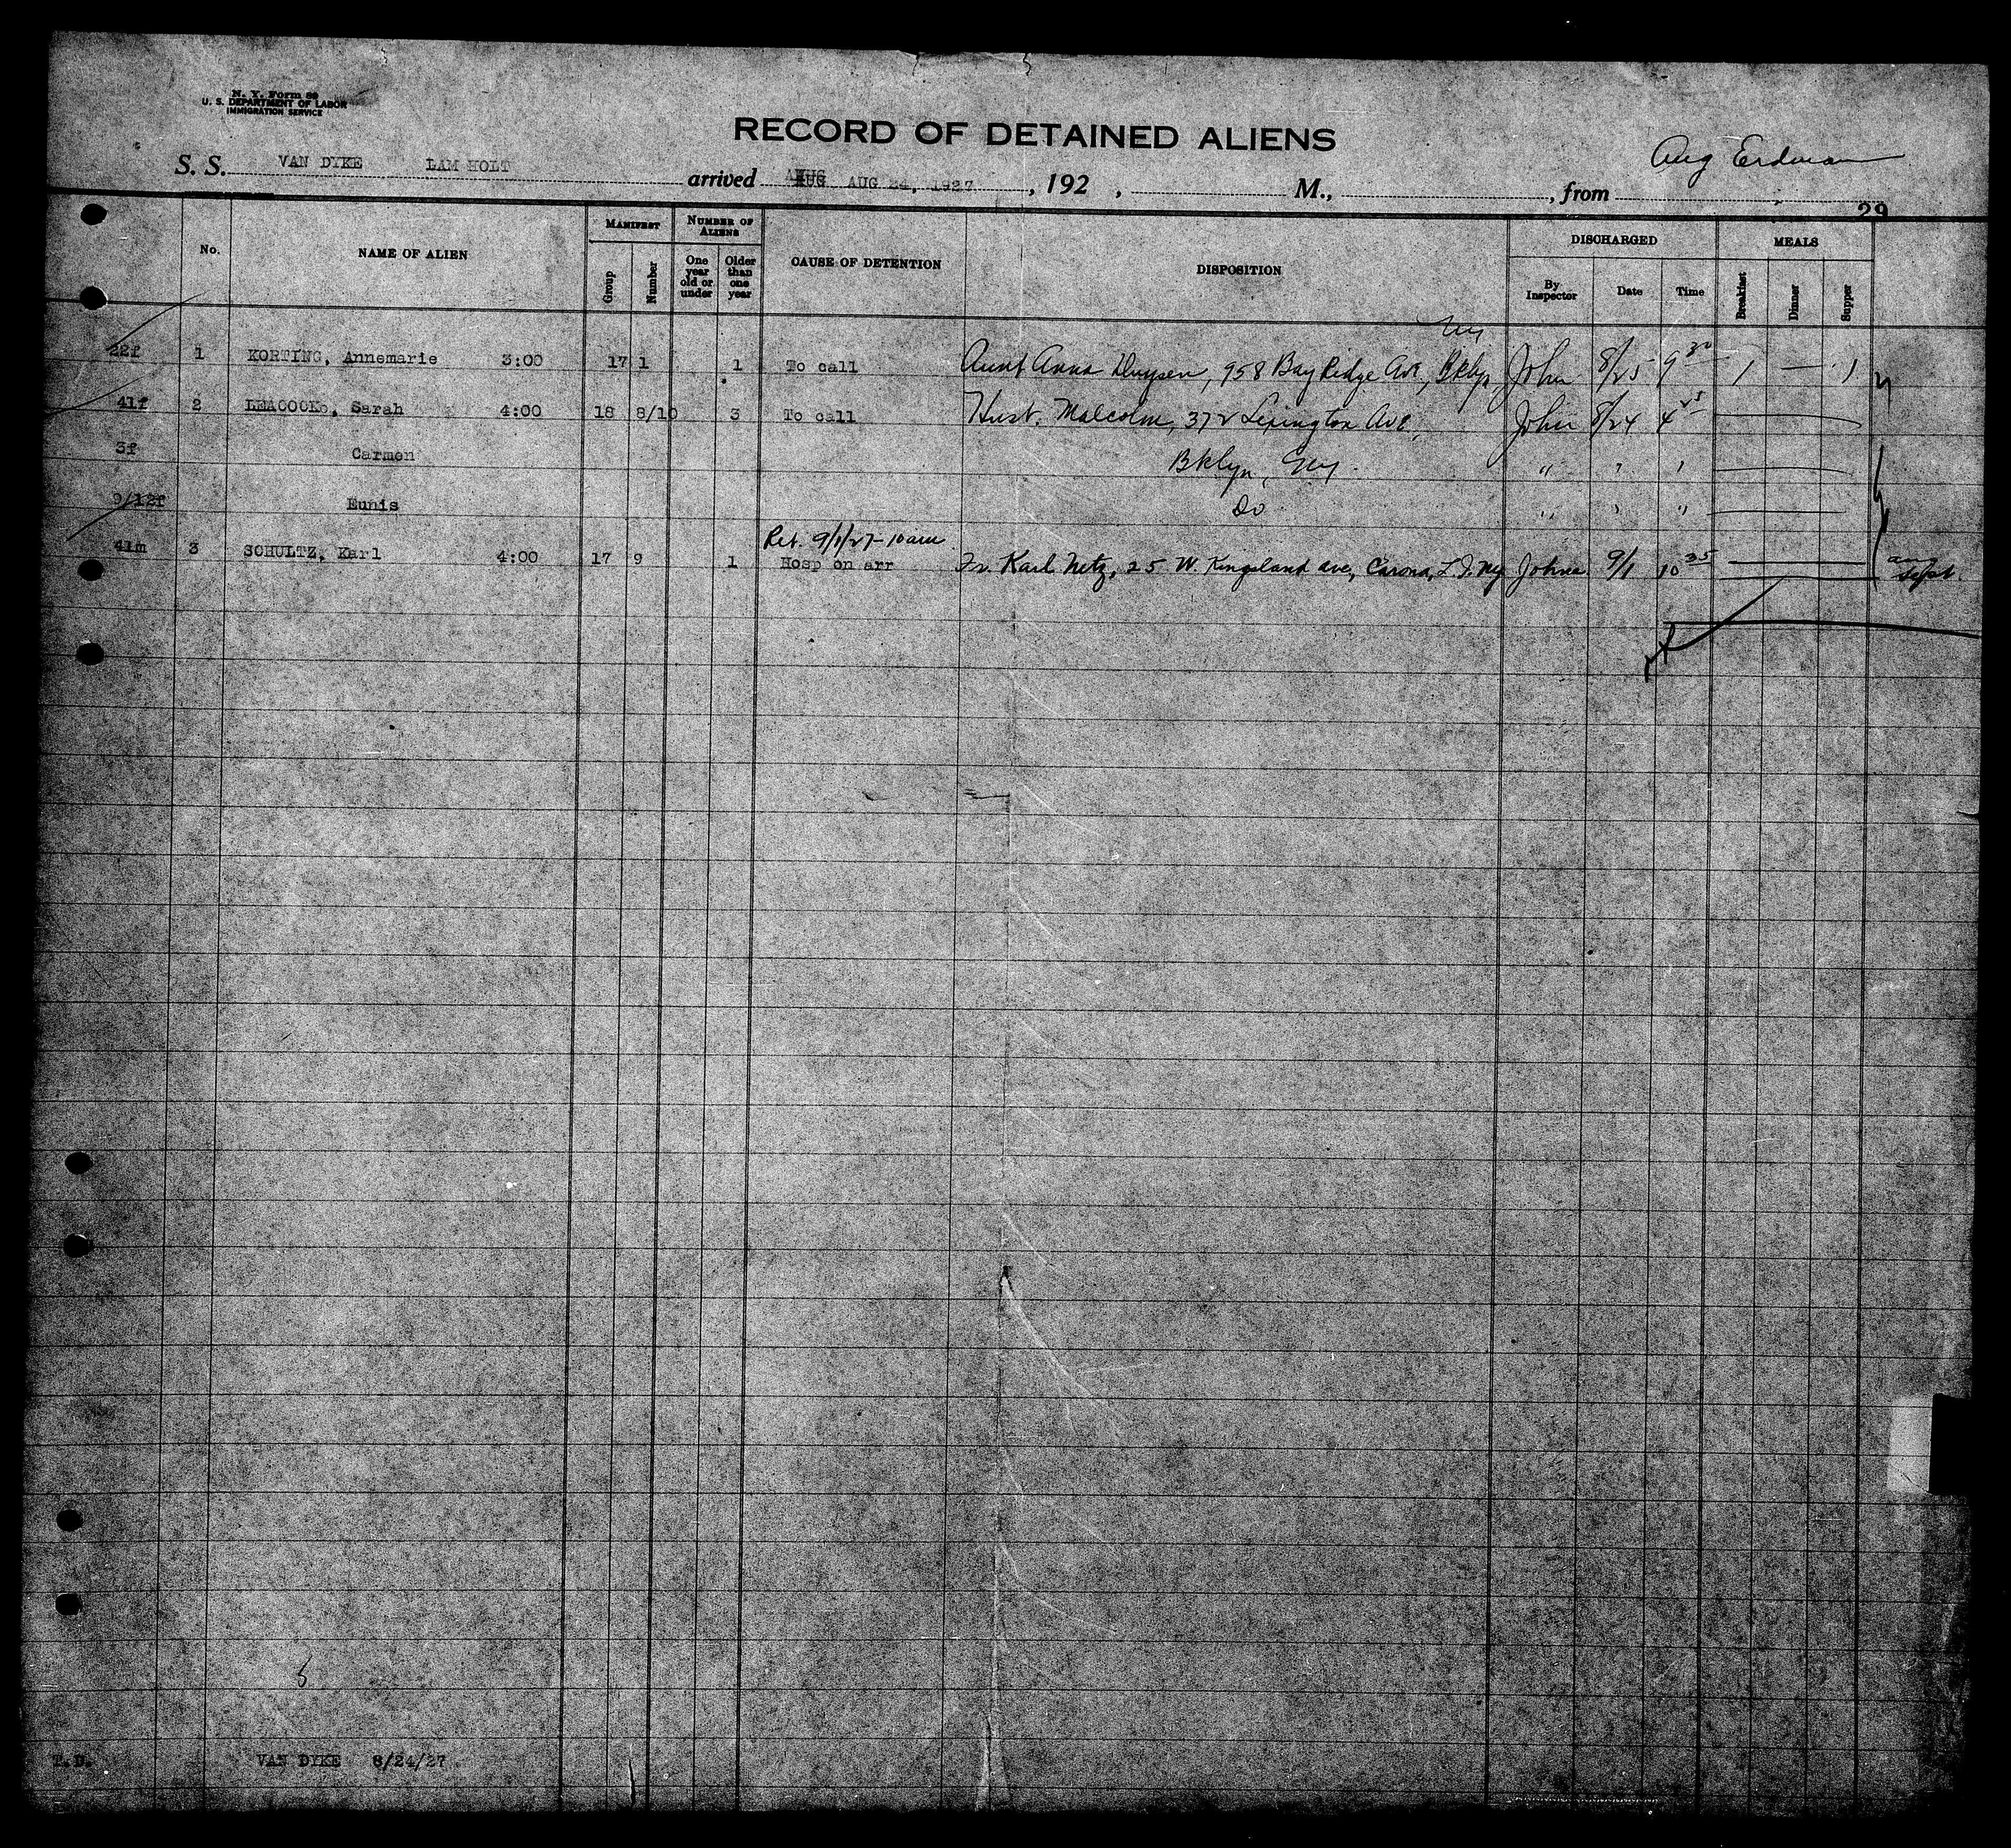 N. Y. Form 89
U. S. DEPARTMENT OF LABOR
IMMIGRATION SERVICE
RECORD OF DETAINED ALIENS
Aug Erdman
S. S. VAN DYKE LAM HOLT arrived AUG 24, 1927, 192 , M., , from
29
No. NAME OF ALIEN MANIFEST Group Number NUMBER OF ALIENS One year old or under Older than one year CAUSE OF DETENTION DISPOSITION DISCHARGED By Inspector Date Time MEALS Breakfast Dinner Supper
22f 1 KORTING, Annemarie 3:00 17 1 1 To call Aunt Anna, 958 Bay Ridge Ave, Bklyn, NY John 8/25 9 30 1 — 1
41f 2 LEACOCK, Sarah 4:00 18 8/10 3 To call Husb. Malcolm, 372 Lexington Ave, John 8/24 4 25
3f Carmen Bklyn, NY. " " "
9/12f Eunis Do " " "
Ret. 9/1/27-10am
41m 3 SCHULTZ, Karl 4:00 17 9 1 Hosp on arr Fr. Karl Netz, 25 W. Kingsland ave, Corona, L.I. NY Johns 9/1 10 35 Sept.
T.D. VAN DYKE 8/24/27